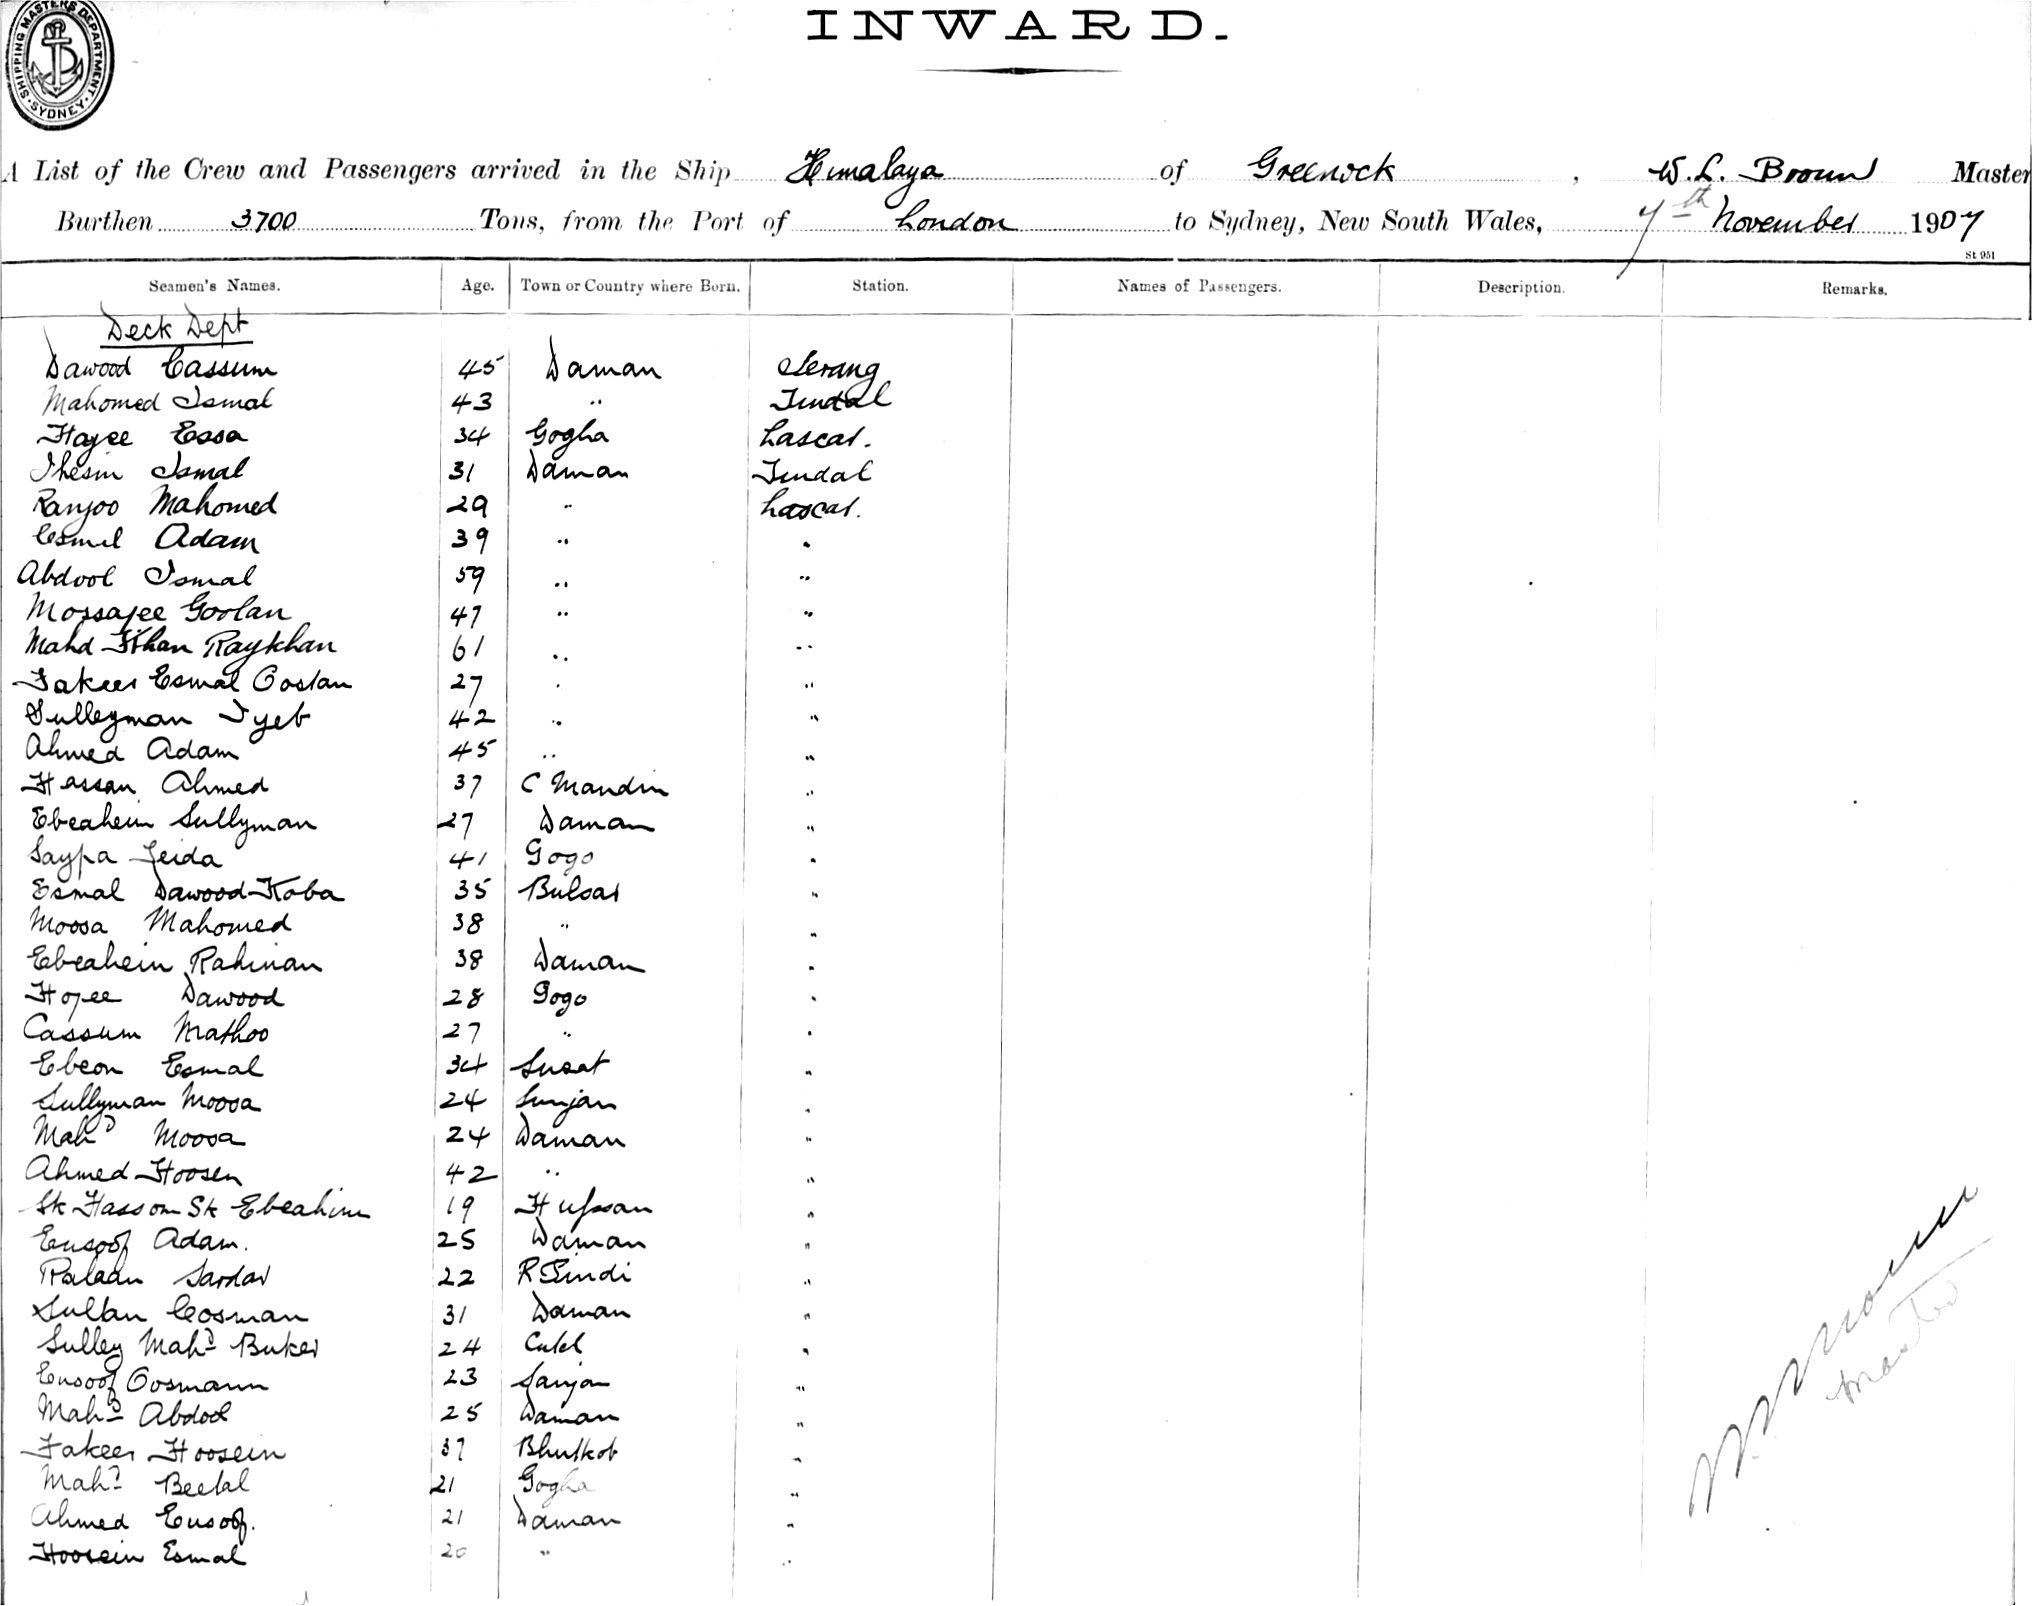 SHIPPING MASTERS DEPARTMENT · SYDNEY ·
INWARD.
A List of the Crew and Passengers arrived in the Ship Himalaya of Greenock, W. L. Broun Master
Burthen 3700 Tons, from the Port of London to Sydney, New South Wales, 7th November 1907
St 951
Seamen's Names. Age. Town or Country where Born. Station. Names of Passengers. Description. Remarks.
Deck Dept
Dawood Cassum 45 Daman Serang
Mahomed Ismal 43 " Tindal
Hajee Essa 34 Gogha Lascar.
Ihesin Ismal 31 Daman Tindal
Ranjoo Mahomed 29 " Lascar.
Esmil Adam 39 " "
Abdool Ismal 59 " "
Mossajee Goolan 47 " "
Mahd Khan Raykhan 61 " "
Fakeer Esmal Oostan 27 " "
Sulleyman Tyeb 42 " "
Ahmed Adam 45 " "
Hassan Ahmed 37 C Mandin "
Ebeahim Sullyman 27 Daman "
Saypa Jeida 41 Gogo "
Esmal Dawood Koba 35 Bulsar "
Moosa Mahomed 38 " "
Ebeahein Rahiman 38 Daman "
Hojee Dawood 28 Gogo "
Cassum Mathoo 27 " "
Ebeon Esmal 34 Surat "
Sullyman Moosa 24 Sunjan "
Mahd Moosa 24 Daman "
Ahmed Hoosen 42 " "
Sk Hassom Sk Ebeahim 19 "
Eusoof Adam. 25 Daman "
Sardar 22 R Pindi "
Sultan Cosman 31 Daman "
Sulley Mahd Buker 24 "
Eusoof Oosmann 23 Sanjan "
Mahd Abdool 25 Daman "
Fakeer Hoosein 37 Bhutkot "
Mahd Beelal 21 Gogha "
Ahmed Eusoof. 21 Daman "
Hoosein Esmal 20 " "
Master